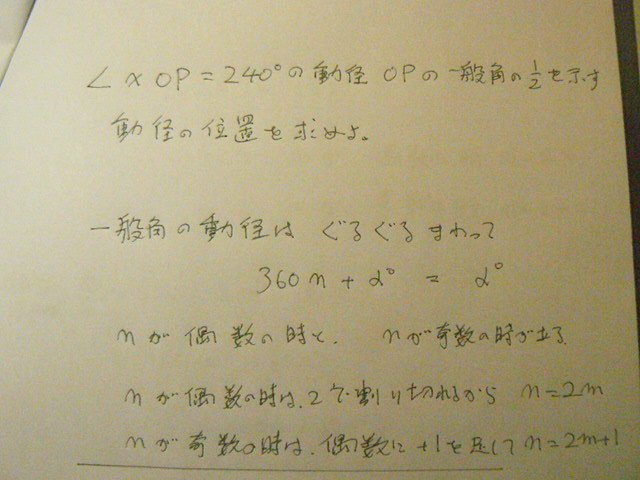 ∠xOP=240°の動径 OPの一般角の1/2を示す
動径の位置を求めよ。
一般角の動径は ぐるぐる まわって
360n+α° = α°
nが 偶数の時と、 nが奇数の時が在る
nが偶数の時は、2で割り切れるから n=2m
nが奇数の時は、偶数に+1を足して n=2m+1